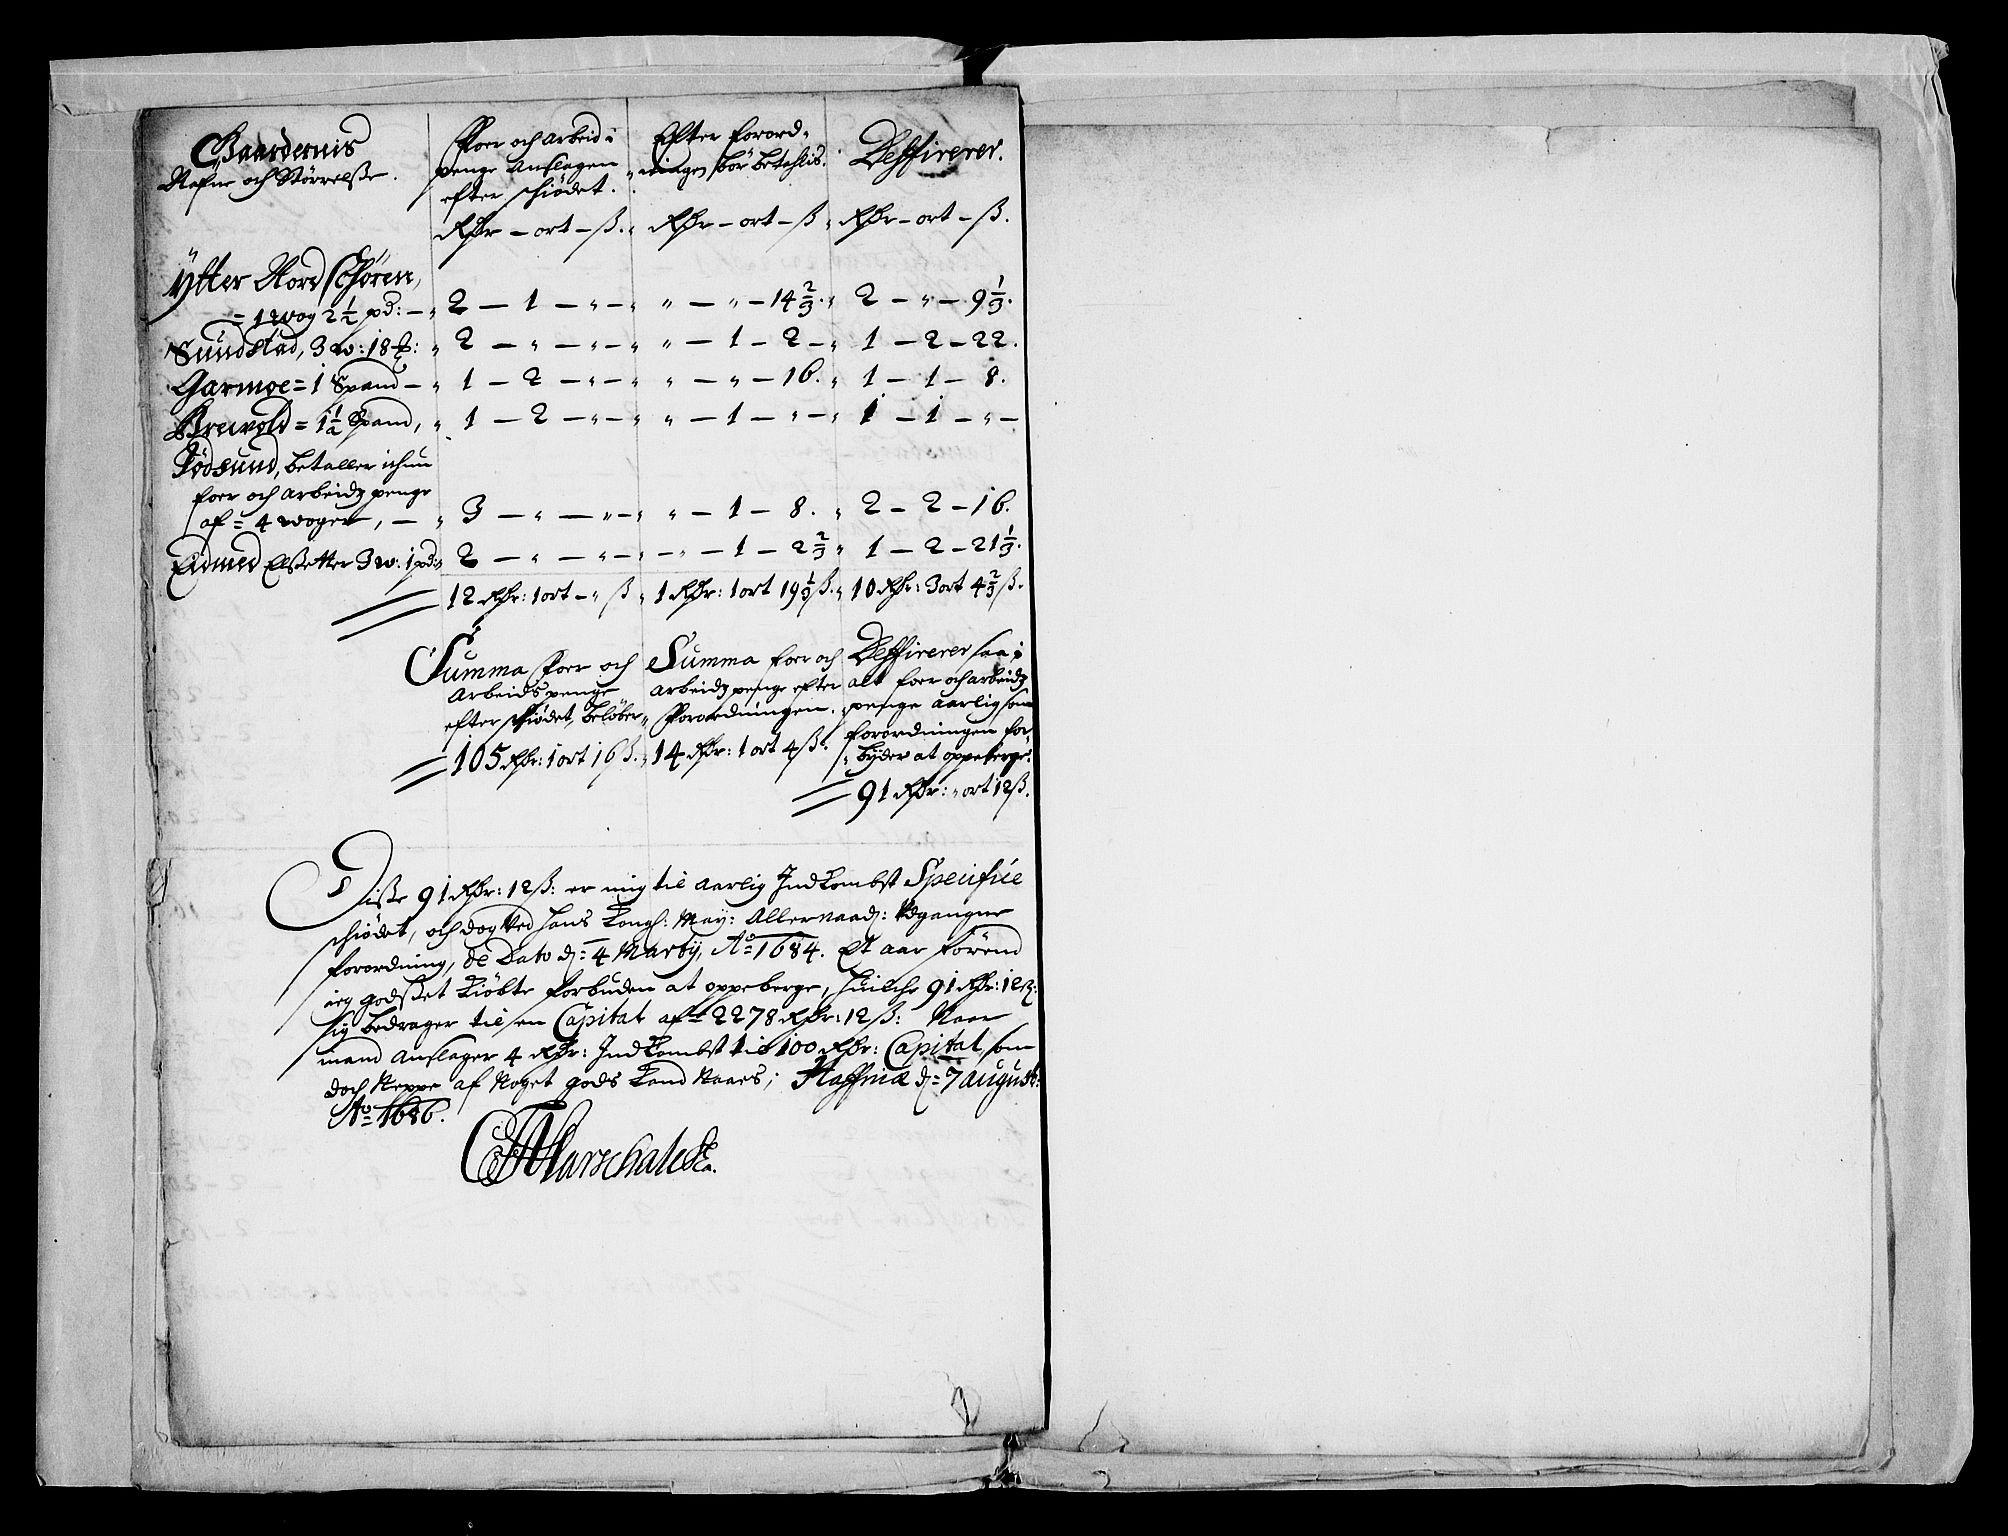 Gaardernis
Nafne och Størrelsse.
Foer och Arbeid i
penge Anslagen
efter schiødet.
Efter forord-
ningen bør betahlis.
Defficerer.
Rdr – ort – ß. Rdr – ort – ß Rdr – ort – ß.
Ytter Nord schoren,
= 1 wog 2 1/2 pd: – „ 2 – 1 – „ – „ „ – „ – 14 2/3. „ 2 – „ – 9 1/3.
Sundstad, 3 w: 18 „ 2 – „ – „ – „ – 1 – 2 – „ 1 – 2 – 22.
Garmoe = 1 Spand – „ 1 – 2 – „ – „ „ – „ – 16. „ 1 – 1 – 8.
= 1 1/2 Spand, „ 1 – 2 – „ – „ „ – 1 – „ – „ 1 – 1 – „ –
Tødsund, betaller ichun
foer och Arbeids penge
af = 4 woger, – „ 3 – „ – „ – „ – 1 – 8. „ 2 – 2 – 16.
Eidmed Elssetter 3 w: 1 pd: „ 2 – „ – „ – „ – 1 – 2 2/3 „ 1 – 2 – 21 1/3.
12 Rdr: 1 ort – „ ß „ 1 Rdr: 1 ort 19 1/3 ß. „ 10 Rdr: 3 ort 4 2/3 ß.
Summa Foer och
Arbeids penge
efter schiødet, beløber „
105 Rdr: 1 ort 16 ß.
Summa foer och
Arbeids penge efter
Forordningen.
14 Rdr: 1 ort 4 ß.
Defficerer saa i
alt foer och arbeids
penge aarlig som
forordningen for-
byder at oppeberge:
91 Rdr: „ ort 12 ß.
Disse 91 Rdr: 12 ß: er mig til aarlig Indkombst Specifice
schiødet, och dog ved Hans Kongl: May: Allernaad: Udgangne
forordning, de Dato d: 4 Marty, Ao 1684. Et aar førend
ieg godsset kiøbte forbuden at oppeberge, huilche 91 Rdr: 12 ß:
sig bedrager til en Capital af = 2278 Rdr: 12 ß: Naar
mand Anslager 4 Rdr: Indkombst til 100 Rdr: Capital, som
doch Neppe af Noget gods kand Naaes; Haffniæ d: 7 August:
Ao 1686.
CMarschalck